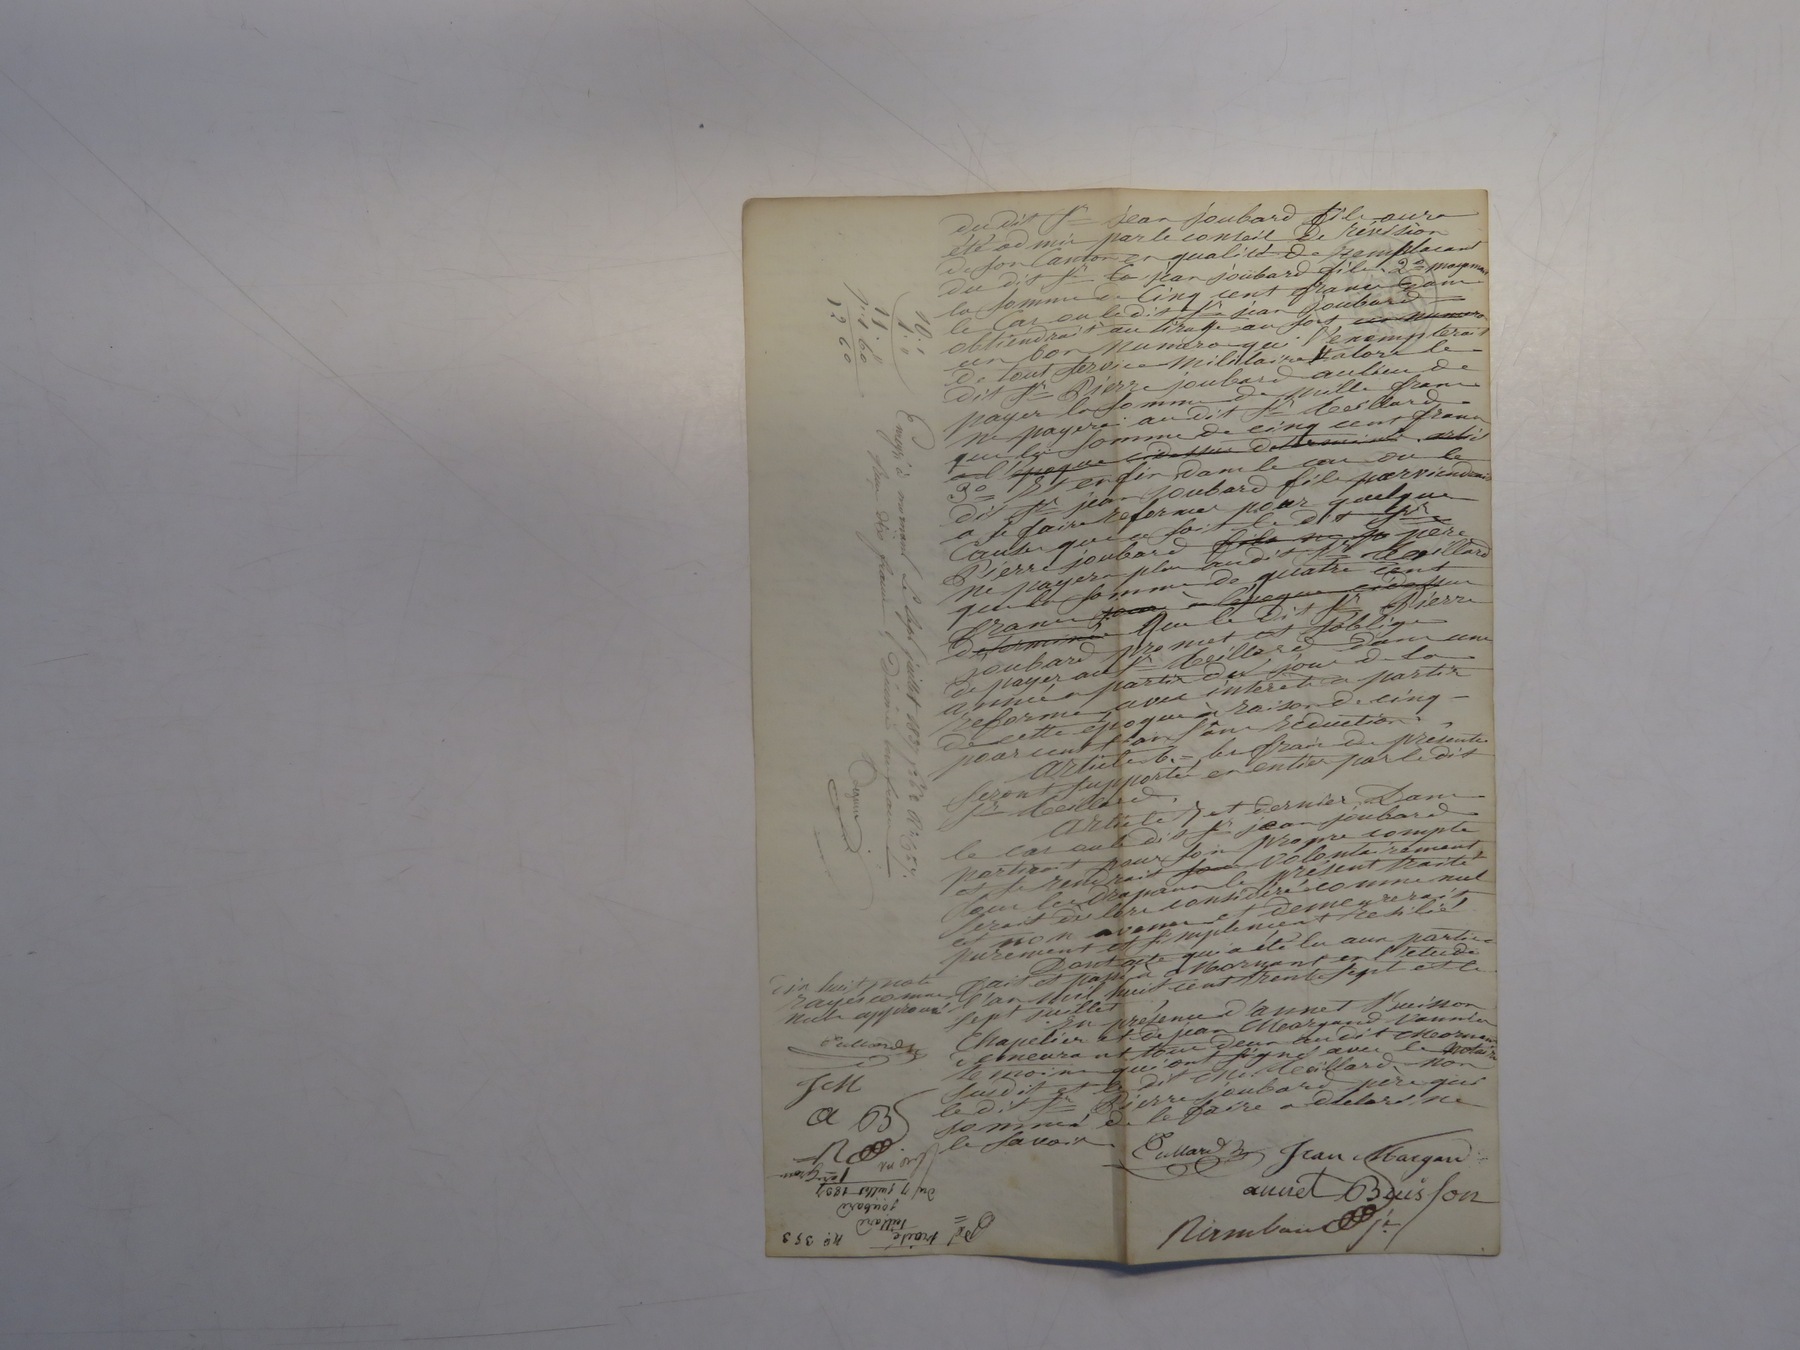 du dit Sr jean joubard fils aura
été ad mis par le conseil de révision
de son Canton en qualité de remplacant
du dit Sr jean joubard fils. 2o moyennant
la somme de Cinq cent francs dans
le Cas ou le dit Sr jean joubard
obtiendrait au tirage au sort un numero
un bon numero qui l'exempterait
de tout service Militaire alors le
dit Sr Pierre joubard aulieu de
payer la somme de Mille francs
ne payera au dit Sr
que la somme de cinq cent francs
a l'époque cidessus determinée
3o Et enfin dans le cas ou le
dit Sr jean joubard fils parviendrait
a se faire reformer pour quelque
Cause que ce soit le dit Sr
Pierre joubard père
ne payera plus audit Sr
que la somme de quatre cent
francs a l'époque cidessus
determinée Que le dit Sr Pierre
joubard promet et s'oblige
de payer au Sr dans une
année a partir du jour de la
reforme avec intérêt a partir
de cette époque a raison de cinq
pour cent l'an sans reduction.
Article 6. - les frais des présente
seront supporté en entier par le dit
Sr
Article 7 et dernier. Dans
le cas ou le dit Sr jean joubard
partirait pour son propre compte
et se rendrait sous volontairement
sous les drapaux le présent traité
serait des lors considéré comme nul
et non avenu et demeurerait
purement et simplement resilié
Dont acte qui a été lu aux parties
fait et passé a Mornant en l'etude
l'an Mil huit cent trente sept et le
sept juillet
En présence d'annet Buisson
Chapelier et de jean Margand
demeurant tous deux audit Mornant
temoins qui ont signé avec le Notaire
susdit et le dit non
le dit Sr Pierre joubard père qui
sommé de le faire a declaré ne
le savoir
Jean Margand
annet Buisson
10.,
1.,0
11.,
,,1,60
12 60
Enregé à mornant le sept juillet 1837,
Reçu dix francs,
Dix huit mots
rayés comme
nuls approuvé
JM
a B
No 353
traité
joubard
du 7 juillet 1837
1re Gros